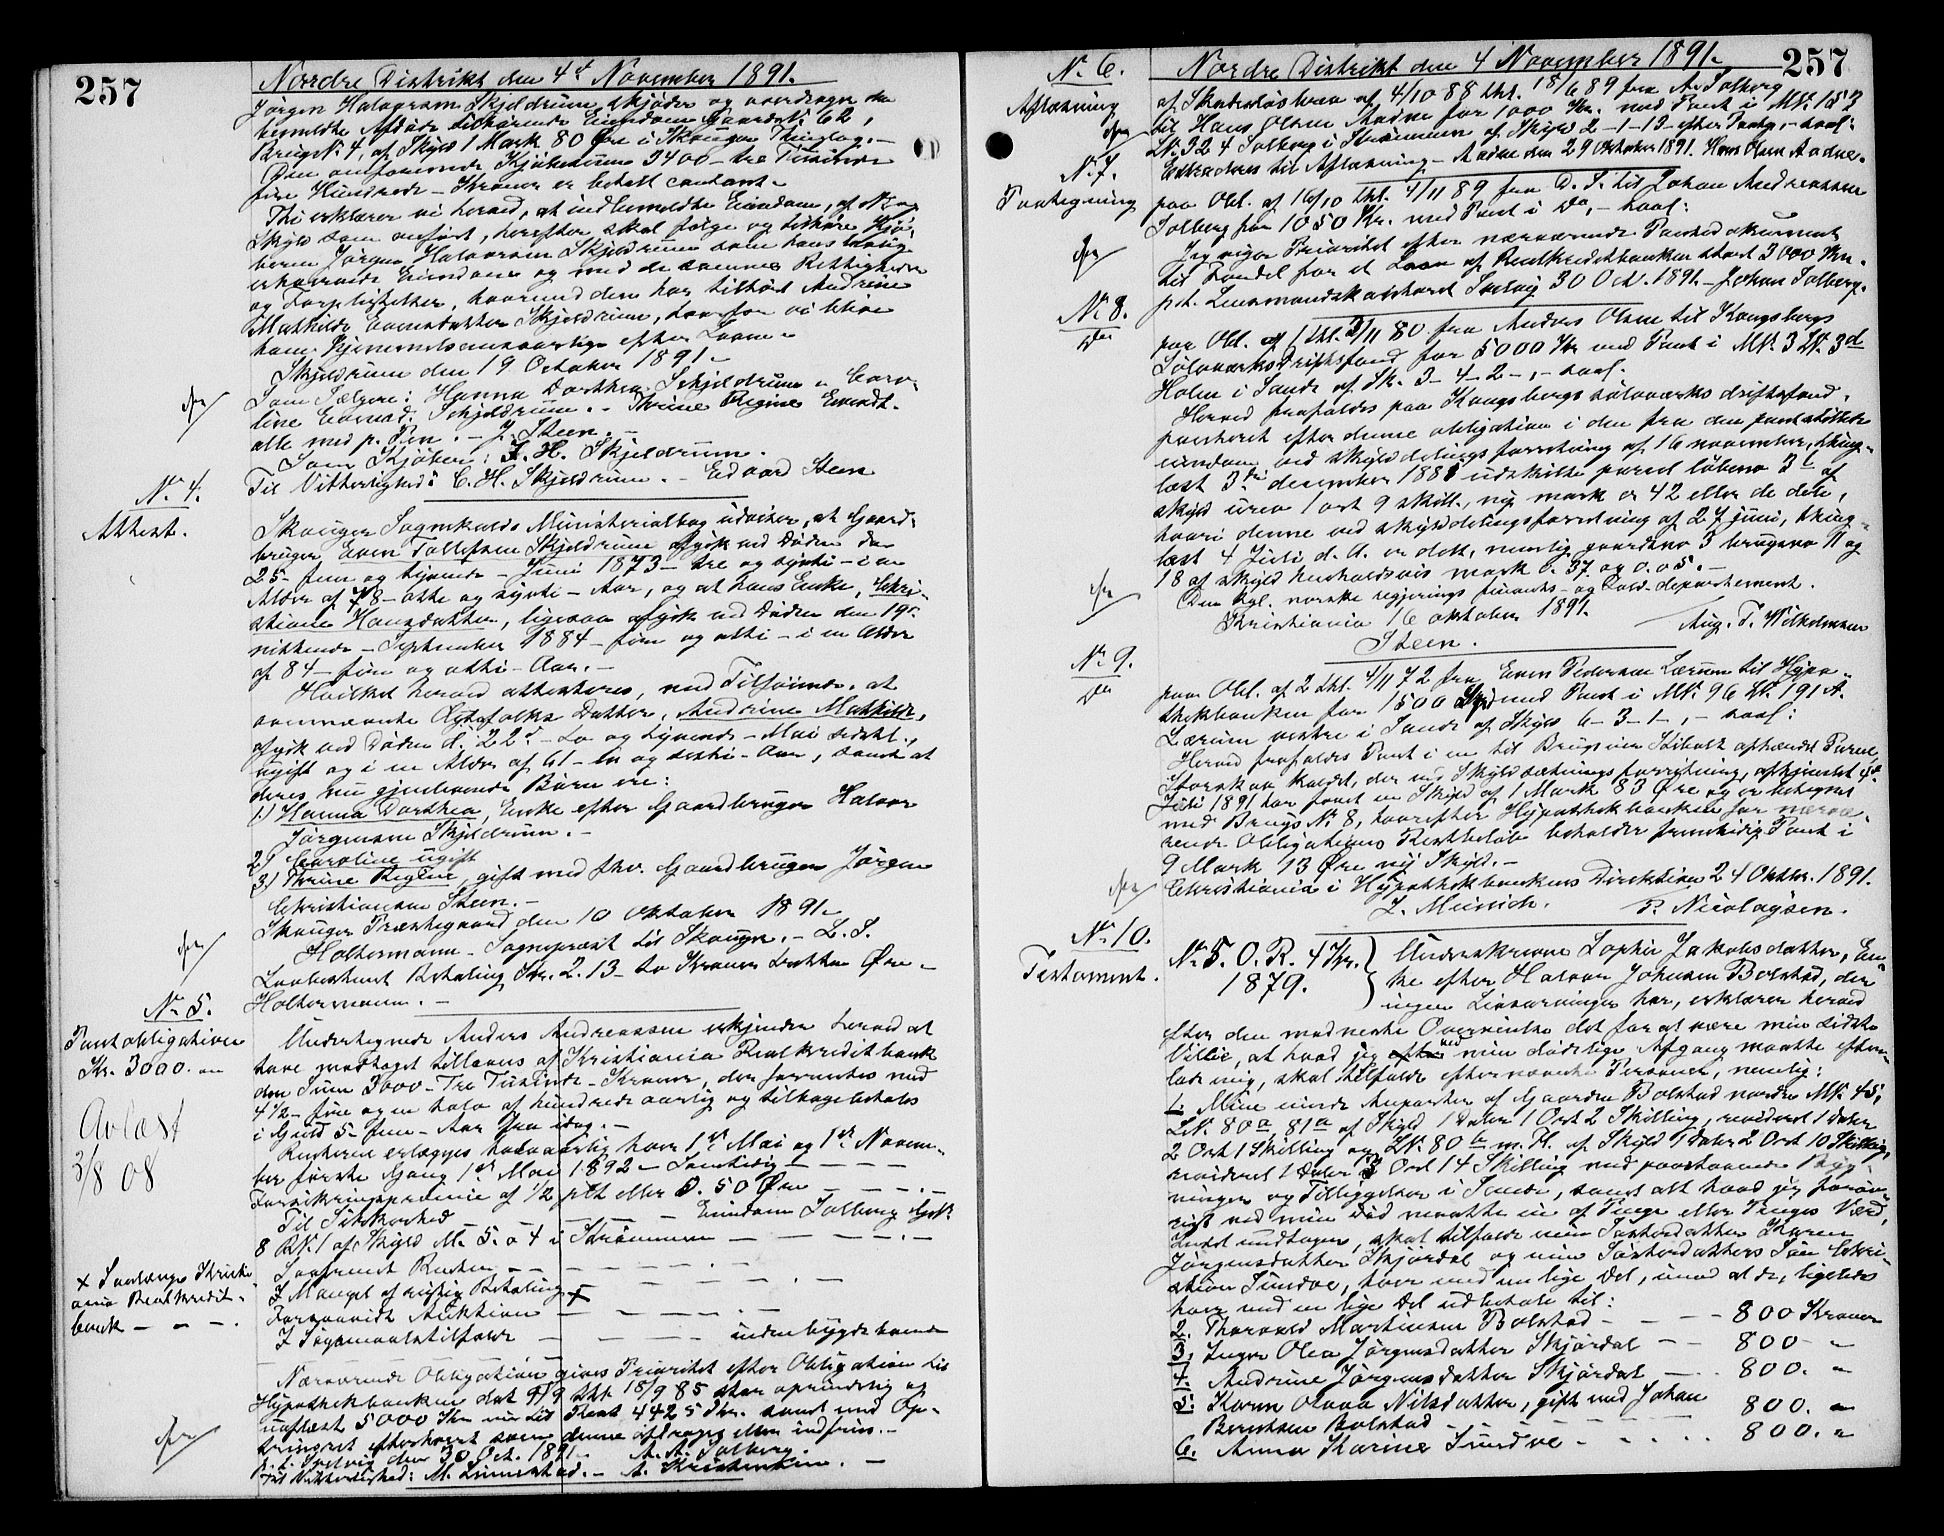 257
Nordre Distrikt den 4de November 1891.
Jörgen Halvorsen Skjeldrum skjöder og overdrager den
hensidste Afdöde tilhörende Eiendom Gaardsn. 62,
Brugs N. 4, af Skyld 1 Mark 80 Öre i Skouger Thinglag.-
Den omforenede Kjöbesum 3400 - tre Tusinde
fire Hundrede - Kroner er betalt contant.-
Thi erklærer vi herved, at indbemeldte Eiendom, af N. og
Skyld som anfört, herefter skal fölge og tilhöre Kjö-
beren Jörgen Halvorsen Skjeldrum som hans lovlig
erhvervede Eiendom og med de samme Rettigheder
og Forpligtelser, hvormed den har tilhört Andrine
Mathilde Evensdatter Skjeldrum, hvorfor vi bliver
ham Hjemmelsansvarlige efter Loven.-
Skjeldrum den 19 October 1891.-
Som Sælgere: Hanna Dorthea Schjeldrum. Caro-
line Evensd. Schjeldrum. - Thrine Regine Evensdt.
alle med p. Pen. - J. Steen.-
Som Kjöber: J. H. Skjeldrum.
Til Vitterlighed: C. H. Skjeldrum. - Edvard Steen
N. 4.
Attest.
Skouger Sognekalds Ministerialbog udviser, at Gaard-
bruger Even Tollefsen Skjeldrum afgik ved Döden den
25 - fem og tyvende - Juni 1873 - tre og sytti - i en
Alder af 78 - otte og sytti - Aar, og at hans Enke, Chri-
stiane Hansdatter, ligesaa afgik ved Döden den 19de
nittende - September 1884 - fire og otti - i en Alder
af 84 - fire og otti - Aar.-
Hvilket herved attesteres, med Tilföiende, at
ovennævnte Ægtefolks Datter, Andrine Mathilde,
afgik ved Döden d. 22de - to og tyvende - Mai sidstl.,
ugift og i en Alder af 61 - en og sexti - Aar, samt at
deres nu gjenlevende Börn ere:
1) Hanna Dorthea, Enke efter Gaardbruger Halvor
Jörgensen Skjeldrum.-
2) Caroline ugift
3) Thrine Regine, gift med fhv. Gaardbruger Jörgen
Christiansen Steen.-
Skouger Præstegaard den 10 Oktober 1891.
Holtermann. Sognepræst til Skouger. - L. S.
Lovbestemt Betaling Kr. 2.13 - to Kroner tretten Öre -
Holtermann.-
N. 5.
Pantobligation
Kr. 3000.
Avlæst
3/8 08
Undertegnede Anders Andreassen erkjender herved at
have modtaget tillaans af Kristiania Realkreditbank
den Sum 3000 - Tre Tusinde - Kroner, der forrentes med
4 1/2 - fire og en halv af hundrede aarlig og tilbagebetales
i Guld 5 - fem - Aar fra idag.-
Renterne erlægges halvaarlig hver 1ste Mai og 1ste Novem-
ber förste Gang 1ste Mai 1892 - Samtidig - - - -
Forsikringspræmie af 1/2 pCt eller 0.50 Öre - - - -
Til Sikkerhed - - - Eiendom Solberg Gsk.
8 BN. 1 af Skyld M. 5. o 4 i Strömmen - - - -
Lovbestemt Renter - - - - - -
I Mangel af rigtig Betaling + - - - -
x Saalænge Kristi-
ania Realkredit-
bank - - -
Foranævnte Auktion - - - -
I Sögsmaalstilfælde - - - - indenbygds boende
- - - - - - -
Nærværende Obligation gives Prioritet efter Obligation til
Hypothekbanken dat 9/9 thl. 18/9 85 stor oprindelig og
uaflæst 5000 Kr. nu til Rest 4425 Kr. samt med Op-
trinsret efterhvert som denne afdrages eller indfries.-
p. t. Svelvig den 30 Oct. 1891. A. A. Solberg.
Til Vitterlighed: M. Linnestad. - A. Kristensen. -
N. 6.
Aflæsning
Nordre Distrikt den 4 November 1891.
257
af Skadeslösbrev af 4/10 88 thl. 18/6 89 fra A. Solberg
til Hans Olsen Aadne for 1000 Kr. med Pant i MN. 153
LN. 324 Solberg i Strömmen af Skyld 2-1-13 - efter Paateg. - saal:
Extraderes til Aflæsning - Aadne den 29 Oktober 1891. Hans Olsen Aadne.
N. 7.
Paategning
paa Obl. af 16/10 thl. 4/11 89 fra D. S. til Johan Andreassen
Solberg for 1050 Kr. med Pant i Do, - saal:
Jeg viger Prioritet efter nærværende Pantedokument
til Fordel for et Laan af Realkreditbanken stort 3000 Kr.
p.t. Lensmandskontoret Svelvig 30 Oct. 1891. - Johan Solberg.
N. 8.
Do
paa Obl. af 1 thl. 3/11 80 fra Anders Olsen til Kongsbergs
Sölvværks Driftsfond for 5000 Kr med Pant i MN. 3 LN. 3d
Holm i Sande af Sk. 3-4-2 -, - saal:
Herved frafaldes paa Kongsbergs sölvværks driftsfond.
panteret efter denne obligation i den fra den pantsatte
eiendom ved skylddelingsforretning af 16 november, thing-
læst 3die desember 1881 udskilte parcel löbeno 3 af
skyld urev. 1 ort 9 skill., ny mark 0.42 eller de dele,
hvori denne ved skylddelingsforretning af 27 juni, thing-
læst 4 Juli d. A. er delt, nemlig gaardsno 3 brugsno 11 og
18 af skyld henholdsvis mark 0.37 og 0.05.-
Den kgl. norske regjerings finants- og told-departement.
Kristiania 16 oktober 1891.
Steen. Aug. T. Wilhelmsen
N. 9.
Do
paa Obl. af 2 thl. 4/11 72 fra Even Pedersen Lærum til Hypo-
thekbanken for 1500 Spd med Pant i MN. 96 LN. 191 A.
Lærum vestre i Sande af Skyld 6-3-1 -, - saal:
Herved frafaldes Pant i en til Brugseier afhændet Parcel
Storskov kaldet, der ved Skyldsætningsforretning, afhjemlet 4de
Juli 1891 har faaet en Skyld af 1 Mark 83 Öre og er betegnet
med Brugs N. 8, hvorefter Hypothekbanken for nærvæ-
rende Obligations Restbelöb beholder fremtidig Pant i
9 Mark 13 Öre ny Skyld.-
Christiania i Hypothekbankens Direktion 24 Oktbr. 1891.
J. Münich. P. Nicolaysen.
N. 10.
Testament.
N. 5. O. R. 4 Kr.
1879.
Underskrevne Sophie Jakobsdatter, En-
ke efter Halvor Johnsen Bolstad, der
ingen Livsarvinger har, erklærer herved
efter den modneste Overveielse det for at være min sidste
Villie, at hvad jeg ved min dödelige Afgang maatte efter-
lade mig, skal tilfalde efternævnte Personer, nemlig:
1. Mine eiende Anparter af Gaarden Bolstad nordre MN. 45,
LN. 80a, 81a af Skyld 1 Daler 1 Ort 2 Skilling, revideret 1 Daler
2 Ort 1 Skilling og LN. 80b m. fl. af Skyld 1 Daler 2 Ort 10 Skilling,
revideret 1 Daler 3 Ort 14 Skilling med paastaaende Byg-
ninger og Tilliggelser i Sande, samt alt hvad jeg foröv-
rigt ved min Död maatte eie af Penge eller Penges Værd,
Intet undtagen, skal tilfalde min Søsterdatter Karen
Jörgensdatter Skjördal og min Søsterdatters Sön Chri-
stian Sundve, hver med en lige Del, imod at de, ligeledes
hver med en lige Del udbetale til:
2. Thorvald Martinsen Bolstad - - - 800 Kroner
3. Inger Olea Jörgensdatter Skjördal - - 800 - "
4. Andrine Jörgensdatter Skjördal - - 800. "
5. Karen Olava Nilsdatter, gift med Johan
Berntsen Bolstad - - - 800. "
6. Anna Karine Sundve - - - 800. "